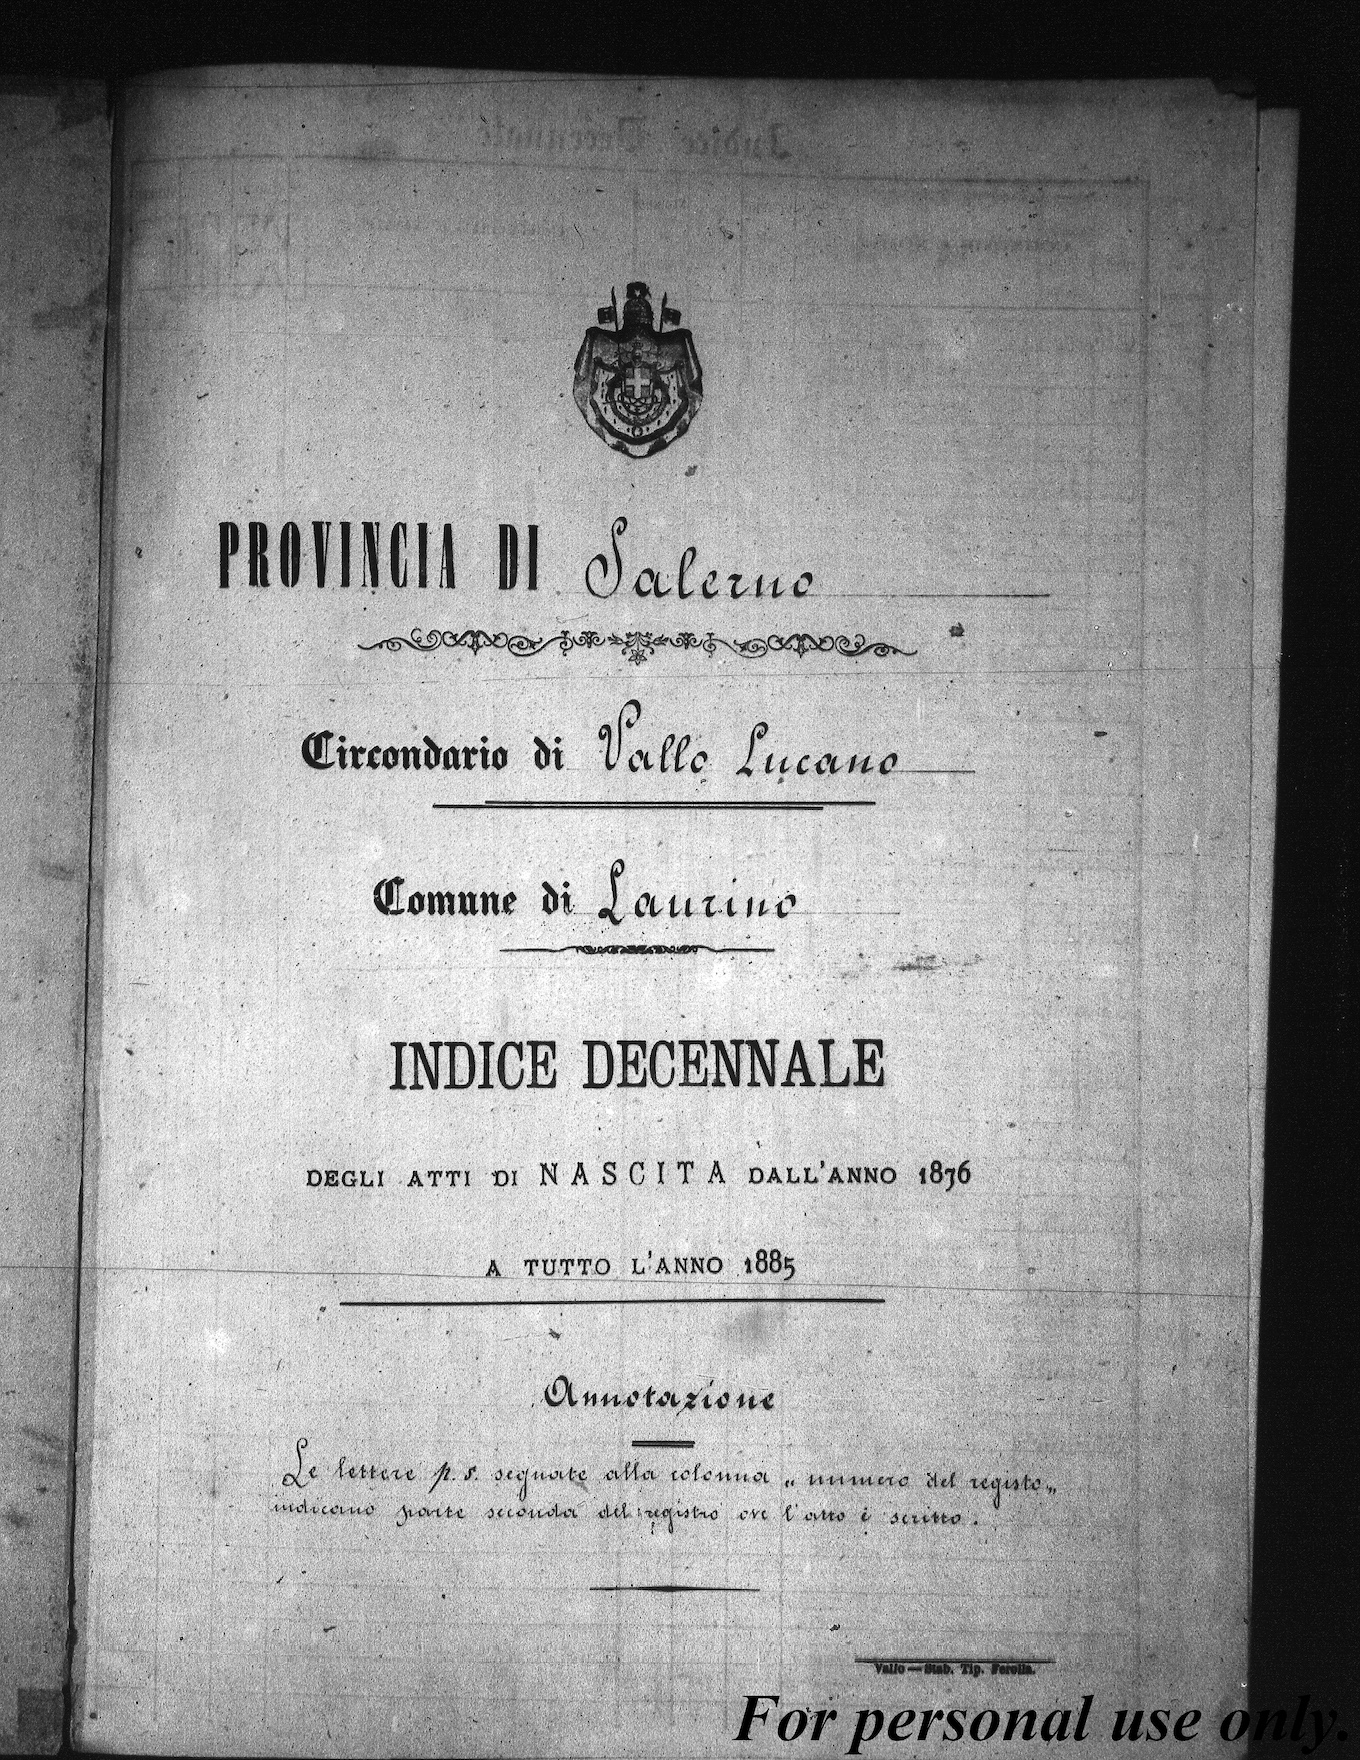 Indice Decennale
PROVINCIA DI Salerno
Circondario di Vallo Lucano
Comune di Laurino
INDICE DECENNALE
DEGLI ATTI DI NASCITA DALL'ANNO 1876
A TUTTO L'ANNO 1885
Annotazione
Le lettere p. s. segnate alla colonna „ numero del registo „
indicano parte seconda del registro ove l'atto è scritto.
Vallo — Stab. Tip. Ferolla.
For personal use only.